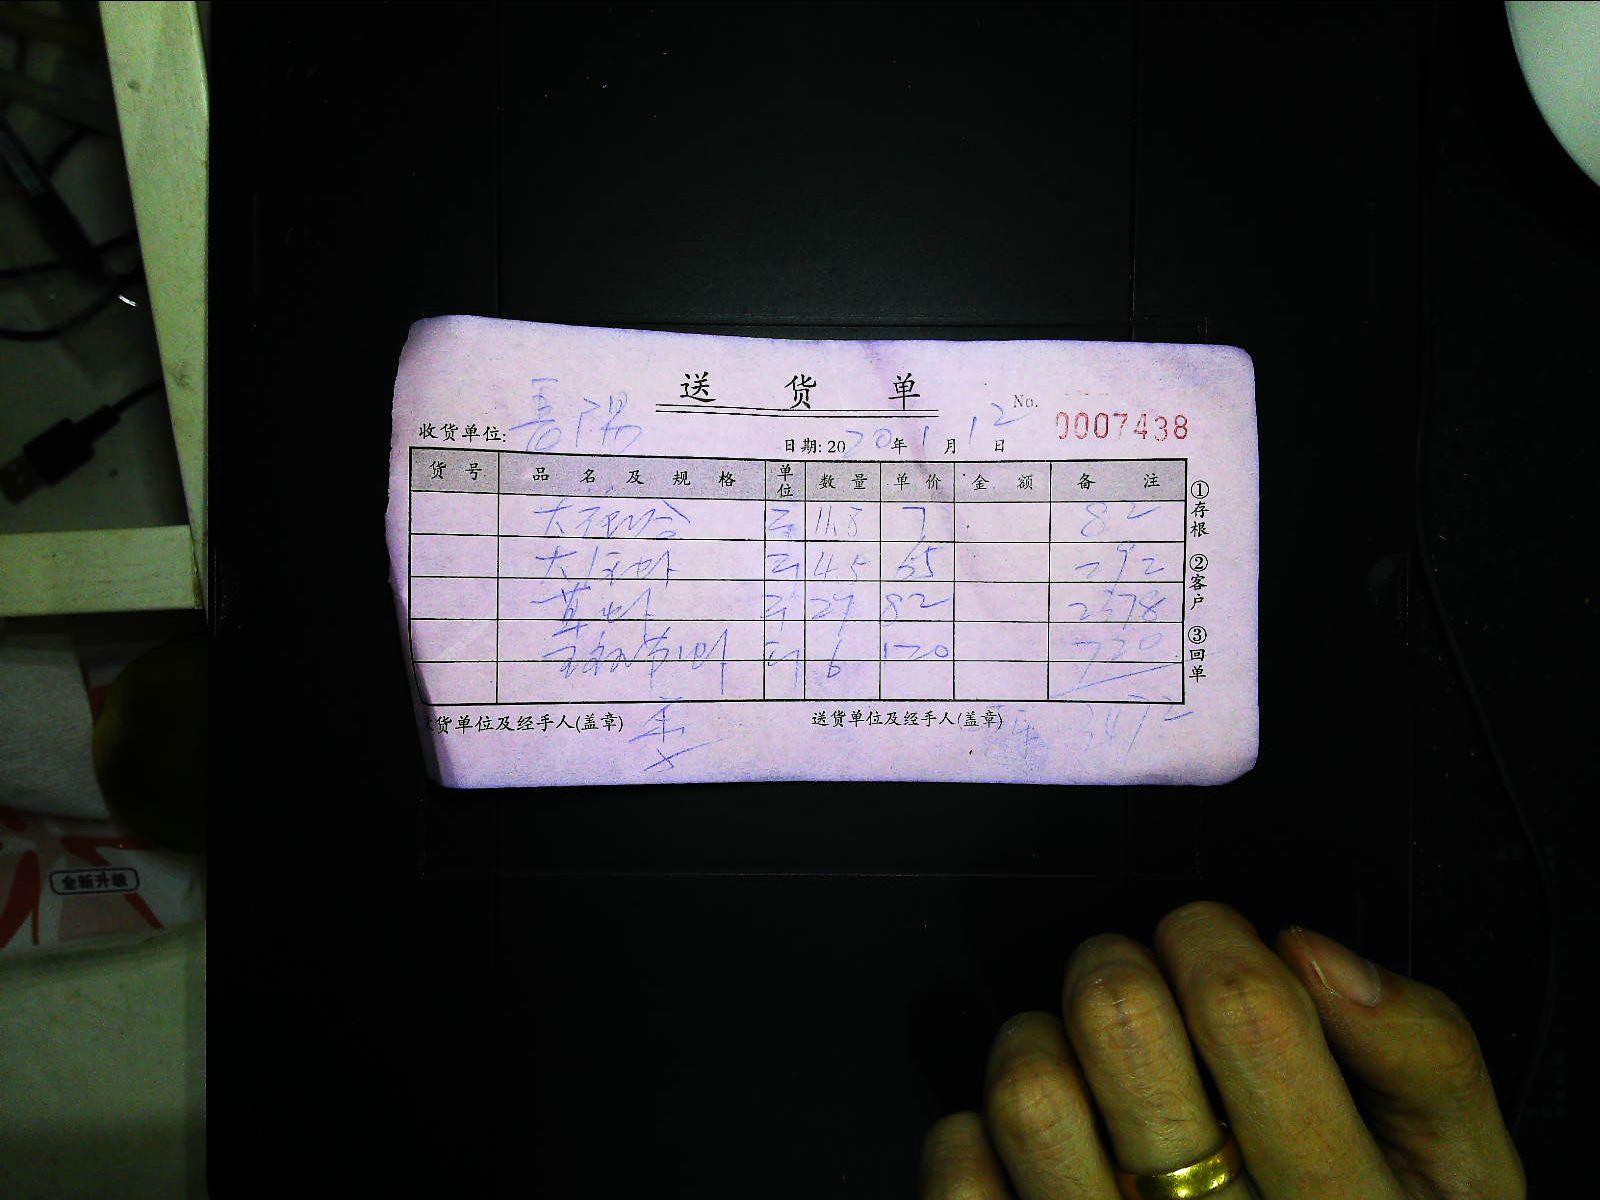 送货单
No. 0007438
收货单位:
日期: 2020年1月12日
货号 品名及规格 单位 数量 单价 金额 备注
11.5 7 82
大 斤 4.5 65 292
草虾 斤 29 82 2378
斤 6 120 720
收货单位及经手人(盖章) 送货单位及经手人(盖章) 3472
①存根 ②客户 ③回单
全新升级